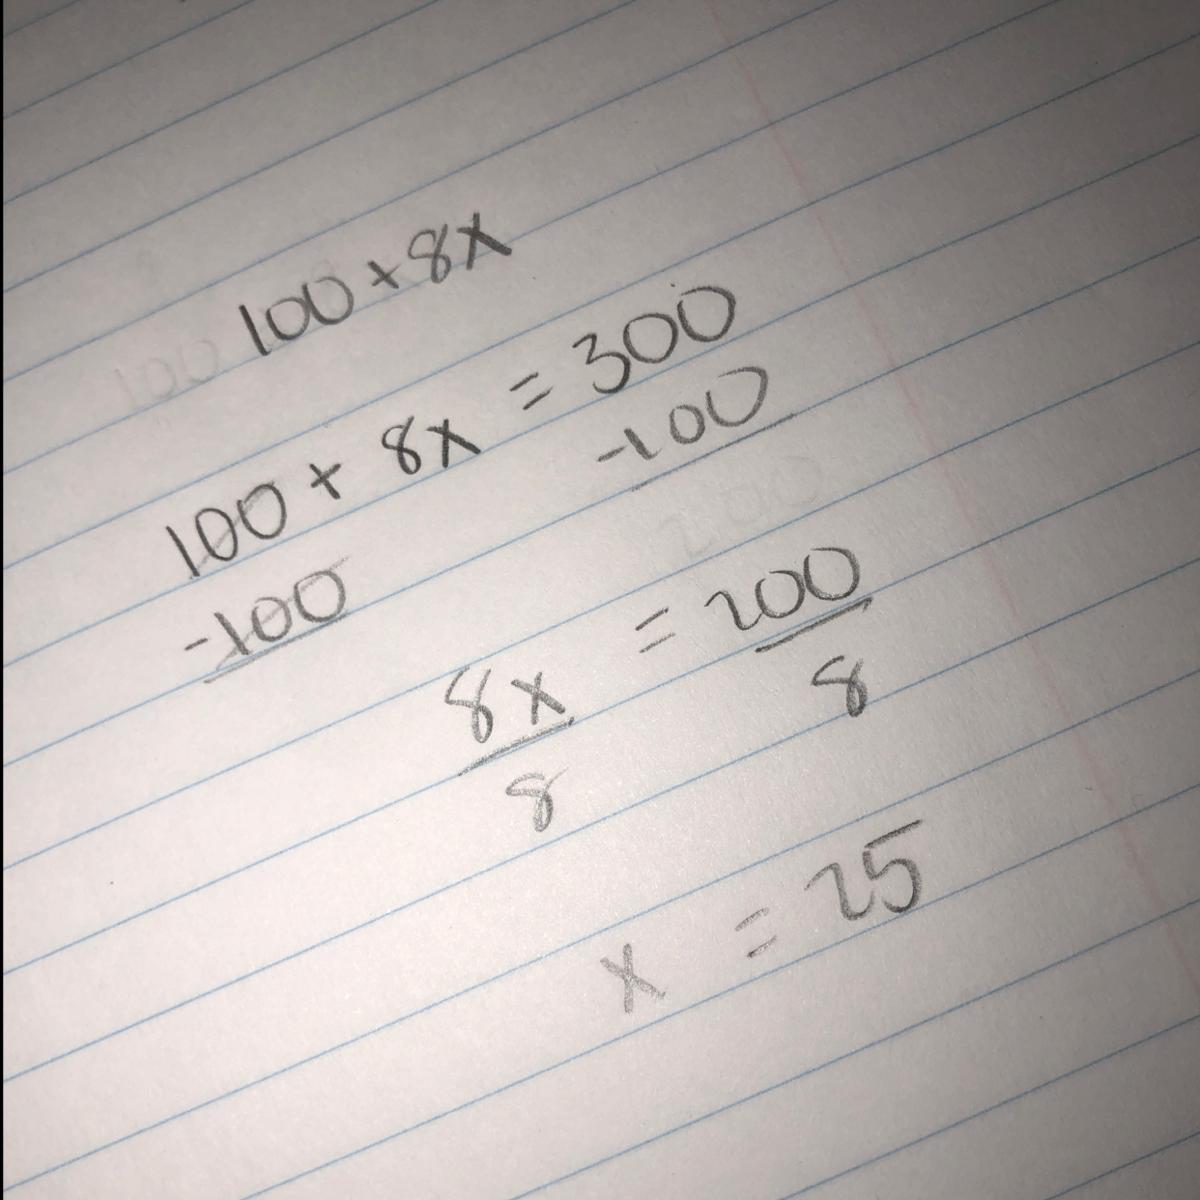 100 + 8x
100 + 8x = 300
-100 -100
8x = 200
8 8
x = 25